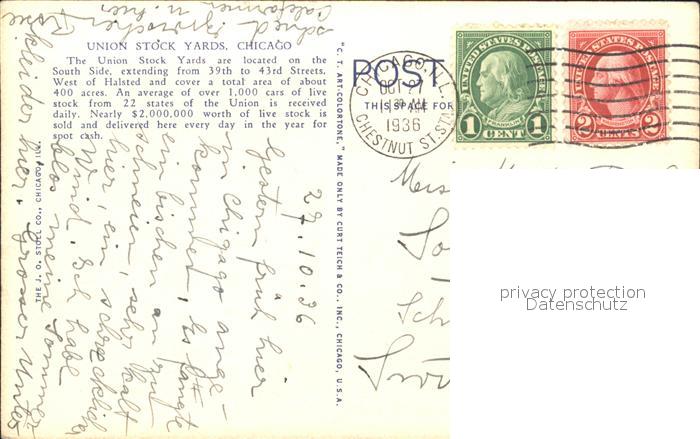 UNION STOCK YARDS, CHICAGO
The Union Stock Yards are located on the
South Side, extending from 39th to 43rd Streets,
West of Halsted and cover a total area of about
400 acres. An average of over 1,000 cars of live
stock from 22 states of the Union is received
daily. Nearly $2,000,000 worth of live stock is
sold and delivered here every day in the year for
spot cash.
THE J. O. STOLL CO., CHICAGO, ILL.
"C. T. ART-COLORTONE," MADE ONLY BY CURT TEICH & CO., INC., CHICAGO, U.S.A.
POST
THIS SPACE FOR
CHICAGO, ILL.
OCT 27
1936
CHESTNUT ST. STA.
UNITED STATES POSTAGE
FRANKLIN
1 CENT 1
UNITED STATES POSTAGE
2 CENTS 2
27.10.36
Gestern früh hier
in Chigago ange-
kommen. Es fängt
ein bischen an zu
schneien, sehr kalt
hier, ein schrecklicher
Wind. Ich habe
blos meine Sommer
kleider hier. Grosser Unter
schied zwischen
Californien u. hier
Miss
privacy protection
Datenschutz